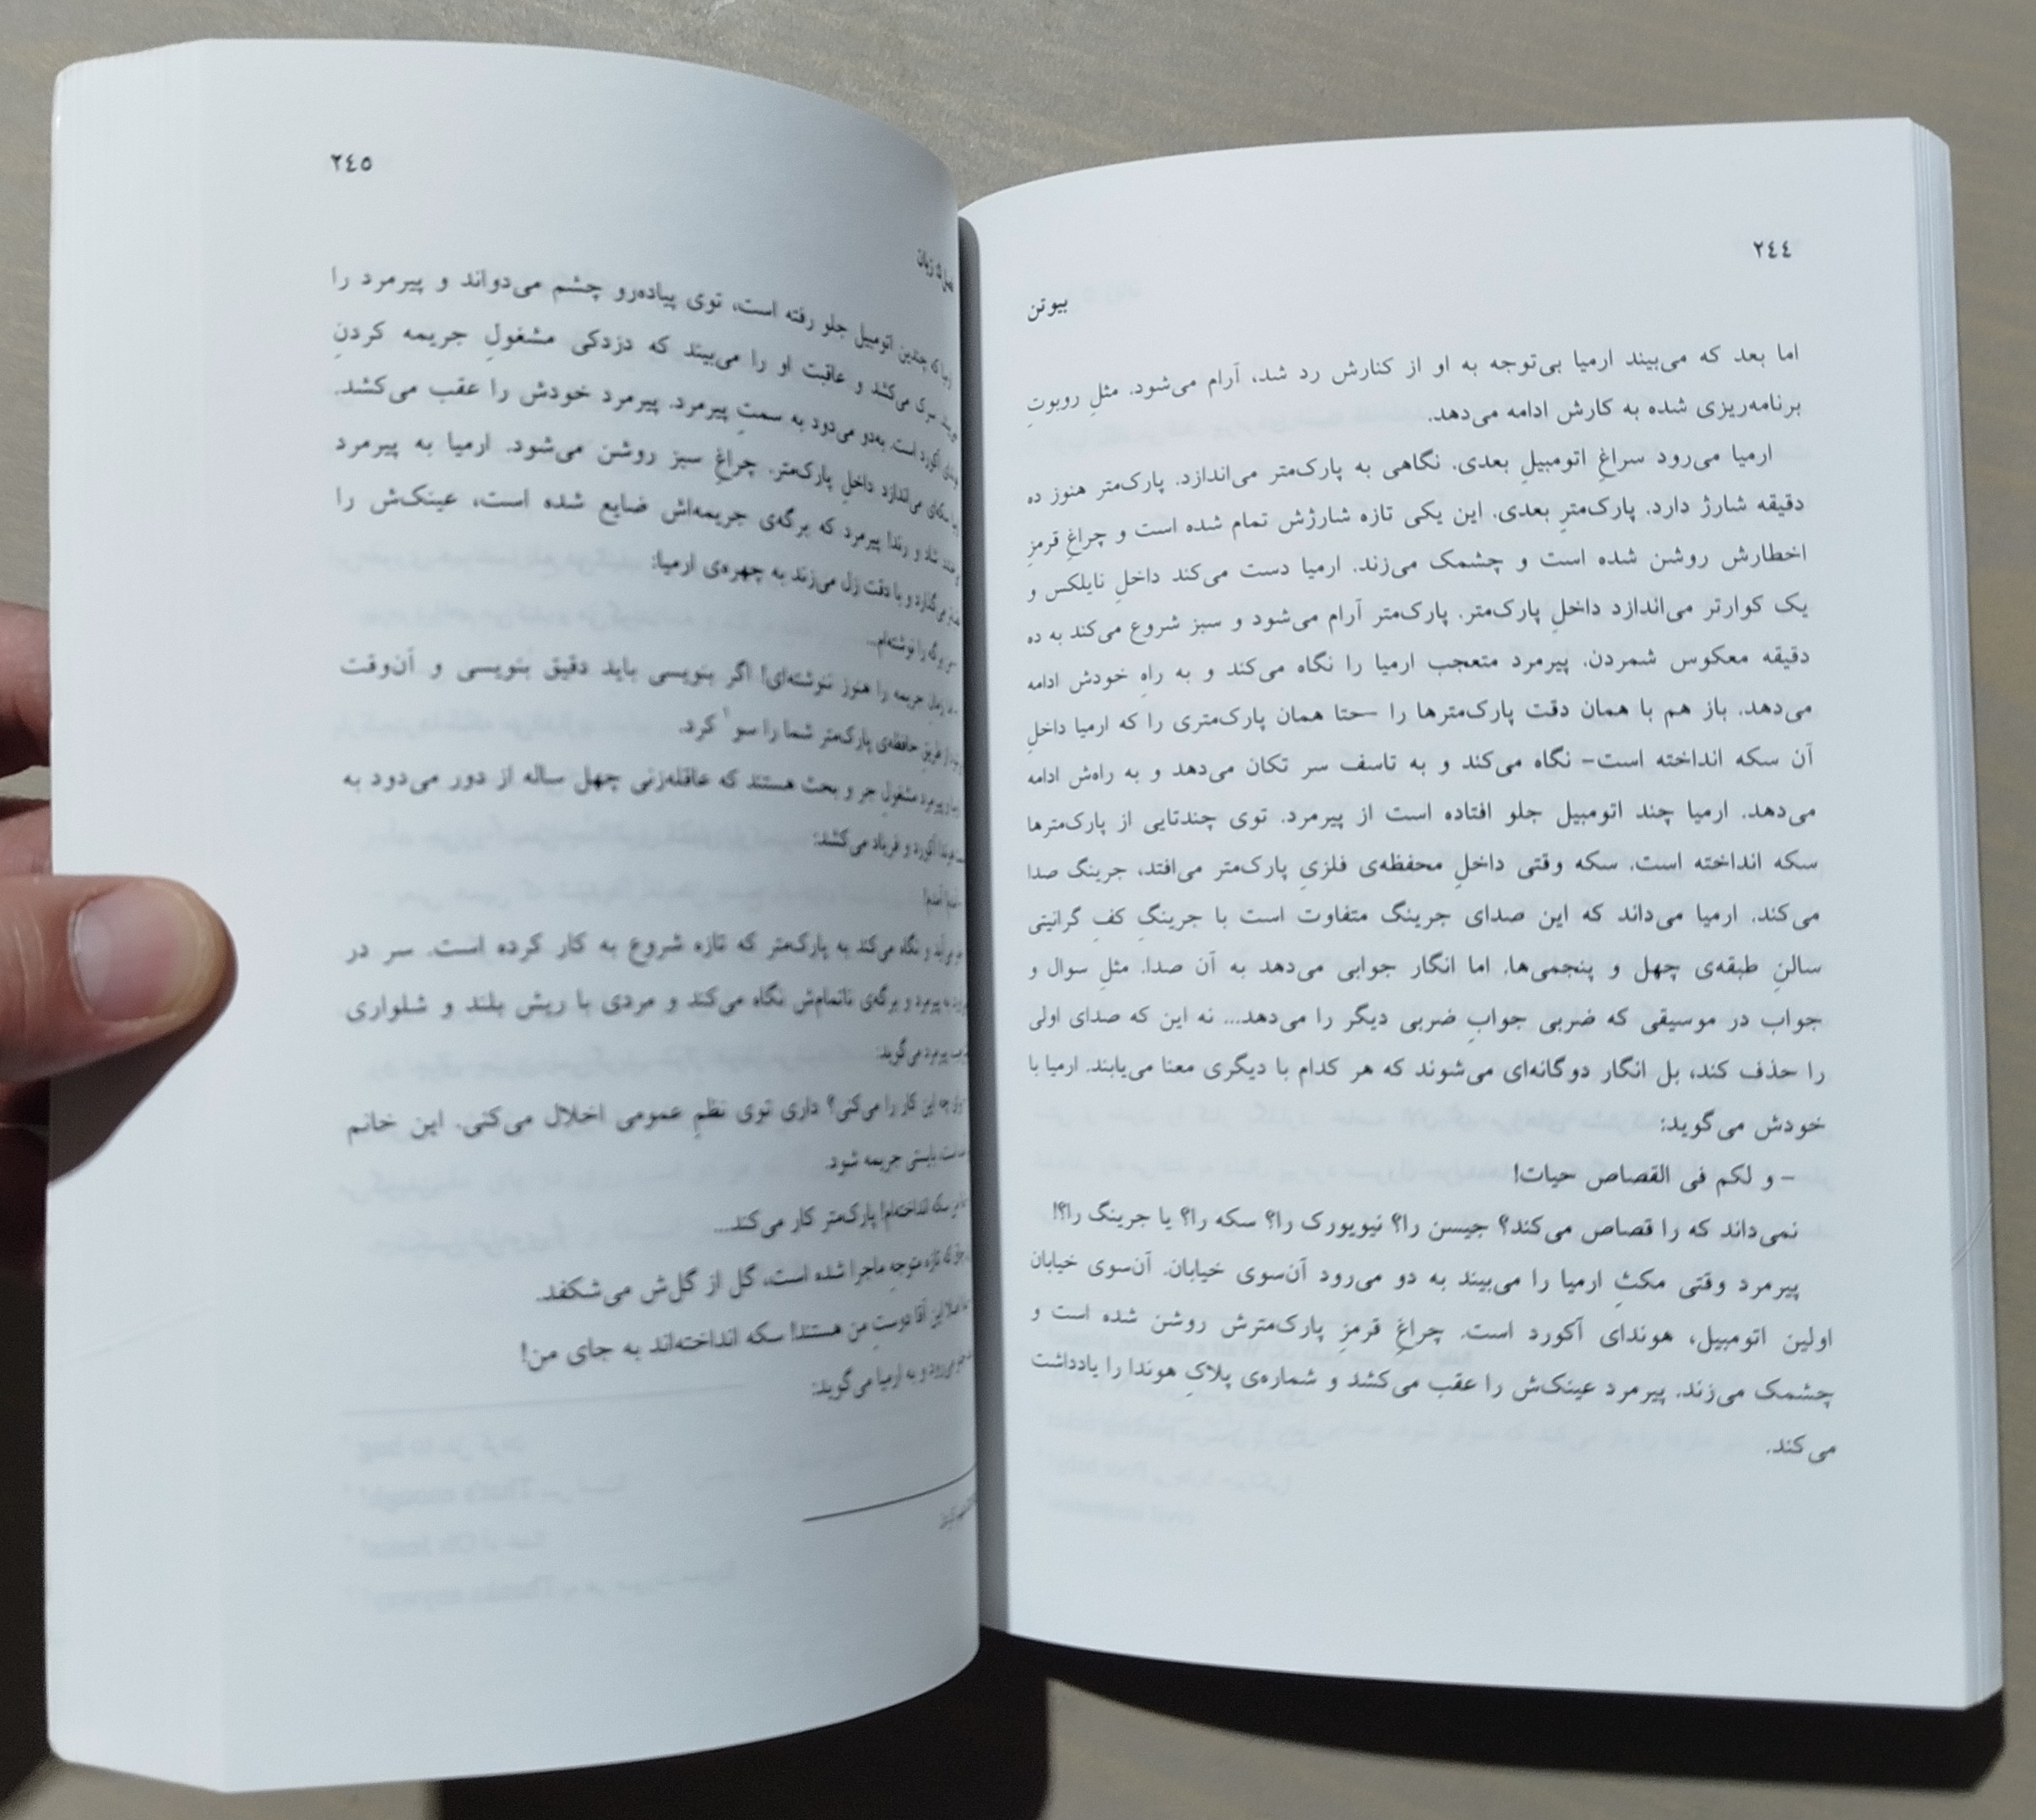 ٢٤٤
بیوتن
اما بعد که می‌بیند ارمیا بی‌توجه به او از کنارش رد شد، آرام می‌شود. مثلِ روبوتِ
برنامه‌ریزی شده به کارش ادامه می‌دهد.
ارمیا می‌رود سراغِ اتومبیلِ بعدی. نگاهی به پارک‌متر می‌اندازد. پارک‌متر هنوز ده
دقیقه شارژ دارد. پارک‌مترِ بعدی. این یکی تازه شارژش تمام شده است و چراغِ قرمزِ
اخطارش روشن شده است و چشمک می‌زند. ارمیا دست می‌کند داخلِ نایلکس و
یک کوارتر می‌اندازد داخلِ پارک‌متر. پارک‌متر آرام می‌شود و سبز شروع می‌کند به ده
دقیقه معکوس شمردن. پیرمرد متعجب ارمیا را نگاه می‌کند و به راهِ خودش ادامه
می‌دهد. باز هم با همان دقت پارک‌مترها را –حتا همان پارک‌متری را که ارمیا داخلِ
آن سکه انداخته است– نگاه می‌کند و به تاسف سر تکان می‌دهد و به راه‌ش ادامه
می‌دهد. ارمیا چند اتومبیل جلو افتاده است از پیرمرد. توی چندتایی از پارک‌مترها
سکه انداخته است. سکه وقتی داخلِ محفظه‌ی فلزیِ پارک‌متر می‌افتد، جرینگ صدا
می‌کند. ارمیا می‌داند که این صدای جرینگ متفاوت است با جرینگِ کفِ گرانیتی
سالنِ طبقه‌ی چهل و پنجمی‌ها. اما انگار جوابی می‌دهد به آن صدا. مثلِ سوال و
جواب در موسیقی که ضربی جوابِ ضربی دیگر را می‌دهد... نه این که صدای اولی
را حذف کند، بل انگار دوگانه‌ای می‌شوند که هر کدام با دیگری معنا می‌یابند. ارمیا با
خودش می‌گوید:
– و لکم فی القصاص حیات!
نمی‌داند که را قصاص می‌کند؟ جیسن را؟ نیویورک را؟ سکه را؟ یا جرینگ را؟!
پیرمرد وقتی مکثِ ارمیا را می‌بیند به دو می‌رود آن‌سوی خیابان. آن‌سوی خیابان
اولین اتومبیل، هوندای آکورد است. چراغِ قرمزِ پارک‌مترش روشن شده است و
چشمک می‌زند. پیرمرد عینک‌ش را عقب می‌کشد و شماره‌ی پلاکِ هوندا را یادداشت
می‌کند.
٢٤٥
زبان
که چندین اتومبیل جلو رفته است، توی پیاده‌رو چشم می‌دواند و پیرمرد را
سرک می‌کشد و عاقبت او را می‌بیند که دزدکی مشغولِ جریمه کردنِ
آکورد است. به‌دو می‌دود به سمتِ پیرمرد. پیرمرد خودش را عقب می‌کشد.
سکه‌ای می‌اندازد داخلِ پارک‌متر. چراغِ سبز روشن می‌شود. ارمیا به پیرمرد
شاد و رندا پیرمرد که برگه‌ی جریمه‌اش ضایع شده است، عینک‌ش را
می‌گذارد و با دقت زل می‌زند به چهره‌ی ارمیا:
برگه را نوشته‌ام...
زمانِ جریمه را هنوز ننوشته‌ای! اگر بنویسی باید دقیق بنویسی و آن‌وقت
از طریقِ حافظه‌ی پارک‌متر شما را سو١ کرد.
پیرمرد مشغولِ جر و بحث هستند که عاقله‌زنی چهل ساله از دور می‌دود به
هوندا آکورد و فریاد می‌کشد:
آمدم!
و نگاه می‌کند به پارک‌متر که تازه شروع به کار کرده است. سر در
به پیرمرد و برگه‌ی ناتمام‌ش نگاه می‌کند و مردی با ریش بلند و شلواری
پیرمرد می‌گوید:
چه این کار را می‌کنی؟ داری توی نظمِ عمومی اخلال می‌کنی. این خانم
بایستی جریمه شود.
سکه انداخته‌ام! پارک‌متر کار می‌کند...
که تازه متوجهِ ماجرا شده است، گل از گل‌ش می‌شکفد.
این آقا دوستِ من هستند! سکه انداخته‌اند به جای من!
می‌رود و به ارمیا می‌گوید: